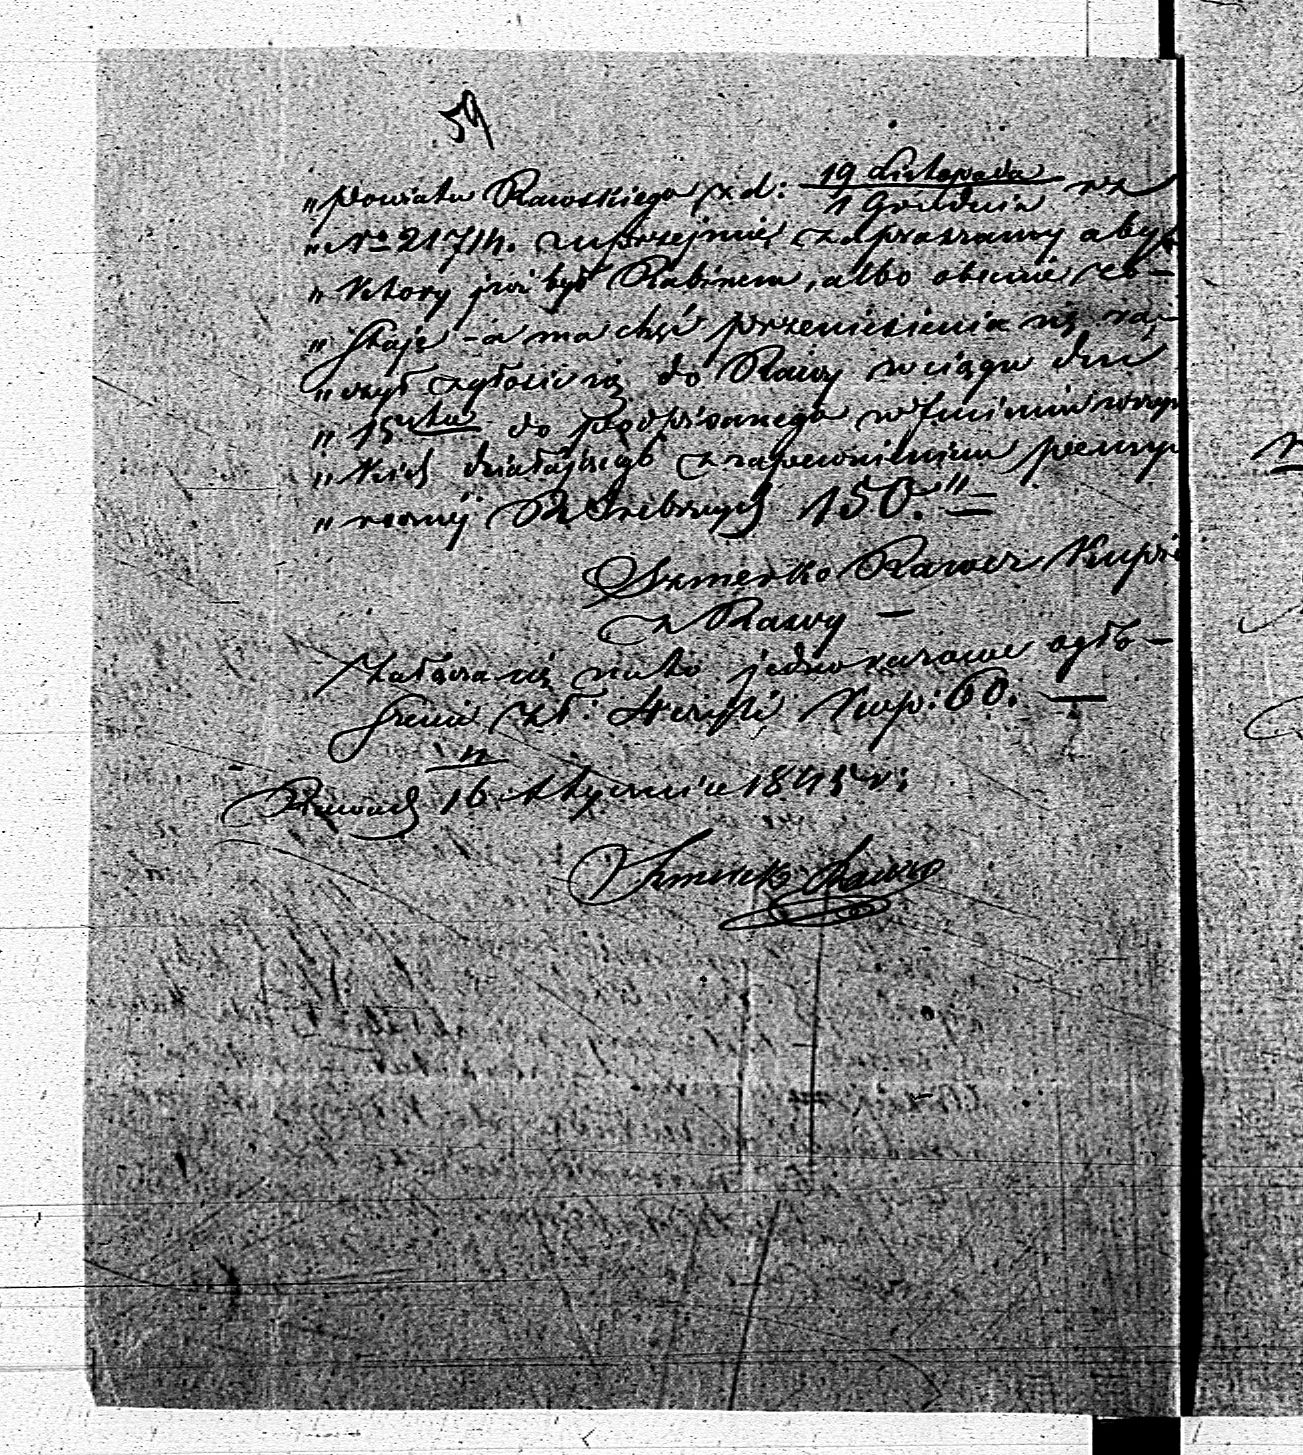 59
„ Powiatu Rawskiego z d: 19 Listopada / 1 Grudnia
„ No 21714. uprzejmie zapraszamy aby
„ Który już był Rabinem, albo obecnie zo-
„ staje - a ma chęć przeniesienia się ra-
„ czył zgłosić się do Rawy w ciągu dni
„ 15stu do podpisanego w Imieniu wszyst
„ kich działającego z zapewnieniem pensyi
„ rocznej R Srebrnych 150."=
Szmerko Rawer Kupie
z Rawy —
Załącza się na to jednorazowe ogło-
szenie zł: Kop: 60. —
Rawa d 4/16 Stycznia 1845 r:
Szmerko